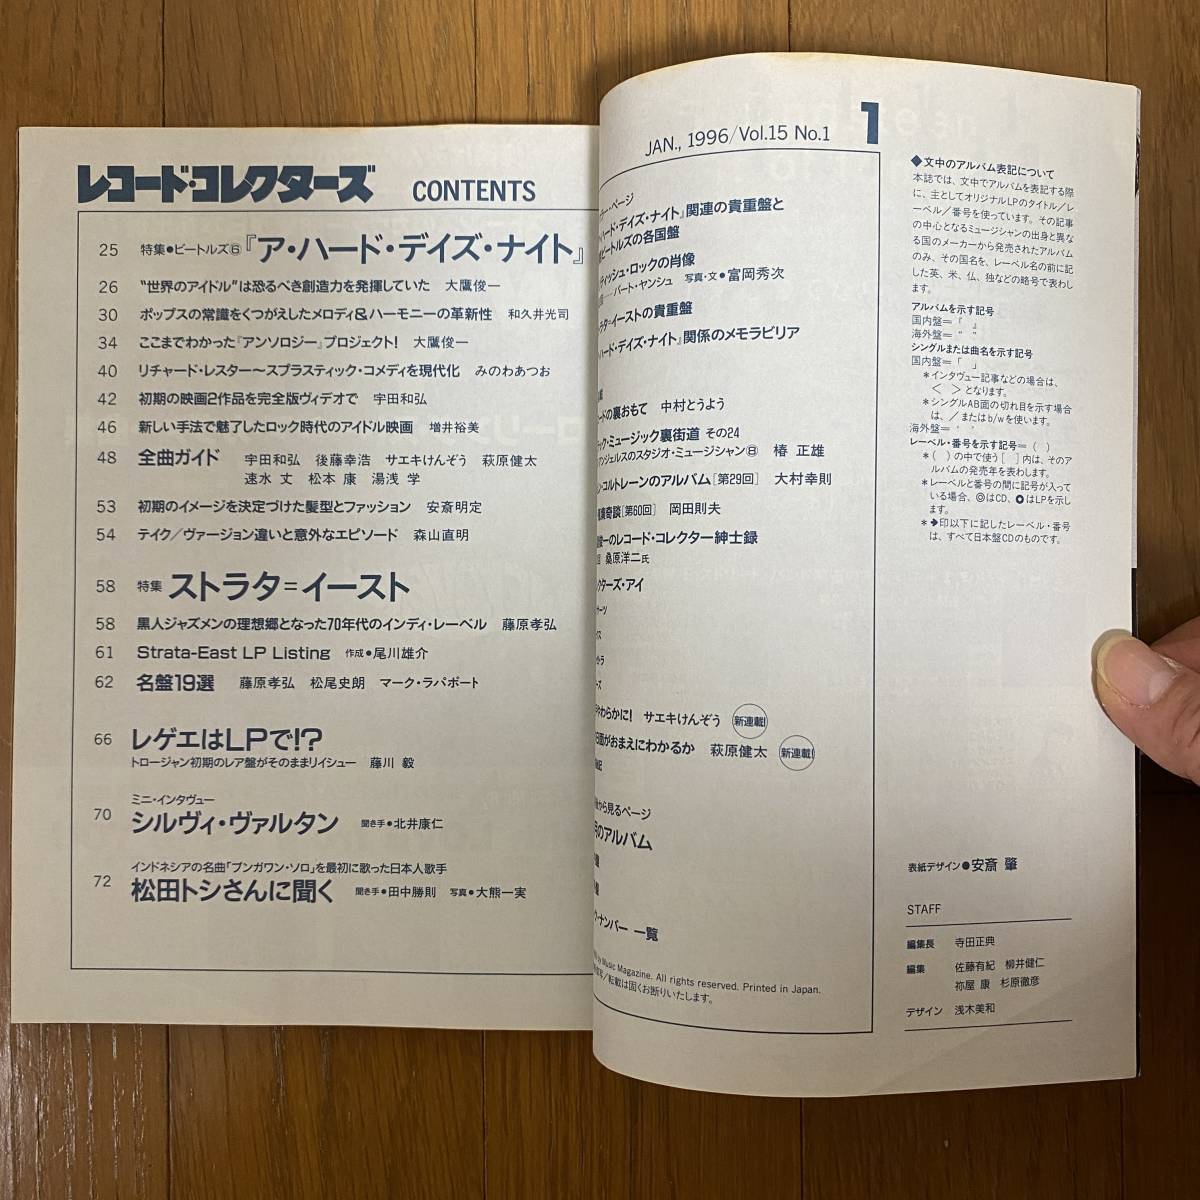 レコード・コレクターズ CONTENTS
25 特集●ビートルズ⑥『ア・ハード・デイズ・ナイト』
26 “世界のアイドル”は恐るべき創造力を発揮していた 大鷹俊一
30 ポップスの常識をくつがえしたメロディ&ハーモニーの革新性 和久井光司
34 ここまでわかった『アンソロジー』プロジェクト! 大鷹俊一
40 リチャード・レスター〜スプラスティック・コメディを現代化 みのわあつお
42 初期の映画2作品を完全版ヴィデオで 宇田和弘
46 新しい手法で魅了したロック時代のアイドル映画 増井裕美
48 全曲ガイド 宇田和弘 後藤幸浩 サエキけんぞう 萩原健太
速水 丈 松本 康 湯浅 学
53 初期のイメージを決定づけた髪型とファッション 安斎明定
54 テイク/ヴァージョン違いと意外なエピソード 森山直明
58 特集 ストラタ=イースト
58 黒人ジャズメンの理想郷となった70年代のインディ・レーベル 藤原孝弘
61 Strata-East LP Listing 作成●尾川雄介
62 名盤19選 藤原孝弘 松尾史朗 マーク・ラパポート
66 レゲエはLPで!?
トロージャン初期のレア盤がそのままリイシュー 藤川 毅
ミニ・インタヴュー
70 シルヴィ・ヴァルタン 聞き手●北井康仁
インドネシアの名曲「ブンガワン・ソロ」を最初に歌った日本人歌手
72 松田トシさんに聞く 聞き手●田中勝則 写真●大熊一実
JAN., 1996/Vol.15 No.1 1
ラー・ページ
ハード・デイズ・ナイト』関連の貴重盤と
ビートルズの各国盤
ティッシュ・ロックの肖像
バート・ヤンシュ 写真・文●富岡秀次
ラタ=イーストの貴重盤
ハード・デイズ・ナイト』関係のメモラビリア
ードの裏おもて 中村とうよう
ック・ミュージック裏街道 その24
アンジェルスのスタジオ・ミュージシャン⑧ 椿 正雄
ン・コルトレーンのアルバム[第29回] 大村幸則
奇談[第60回] 岡田則夫
一のレコード・コレクター紳士録
桑原洋二氏
クターズ・アイ
ーツ
クス
トラ
ーズ
やわらかに! サエキけんぞう 新連載!
日面がおまえにわかるか 萩原健太 新連載!
後記
から見るページ
月のアルバム
ク・ナンバー 一覧
by Music Magazine. All rights reserved. Printed in Japan.
/転載は固くお断りいたします。
◆文中のアルバム表記について
本誌では、文中でアルバムを表記する際
に、主としてオリジナルLPのタイトル/レ
ーベル/番号を使っています。その記事
の中心となるミュージシャンの出身と異な
る国のメーカーから発売されたアルバム
のみ、その国名を、レーベル名の前に記
した英、米、仏、独などの略号で表わし
ます。
アルバムを示す記号
国内盤=『 』
海外盤=“ ”
シングルまたは曲名を示す記号
国内盤=「 」
*インタヴュー記事などの場合は、
< >となります。
*シングルAB面の切れ目を示す場合
は、/またはb/wを使います。
海外盤=‘ ’
レーベル・番号を示す記号=( )
*( )の中で使う[ ]内は、そのア
ルバムの発売年を表わします。
*レーベルと番号の間に記号が入って
いる場合、◎はCD、●はLPを示し
ます。
*➔印以下に記したレーベル・番号
は、すべて日本盤CDのものです。
表紙デザイン●安斎 肇
STAFF
編集長 寺田正典
編集 佐藤有紀 柳井健仁
祢屋 康 杉原徹彦
デザイン 浅木美和